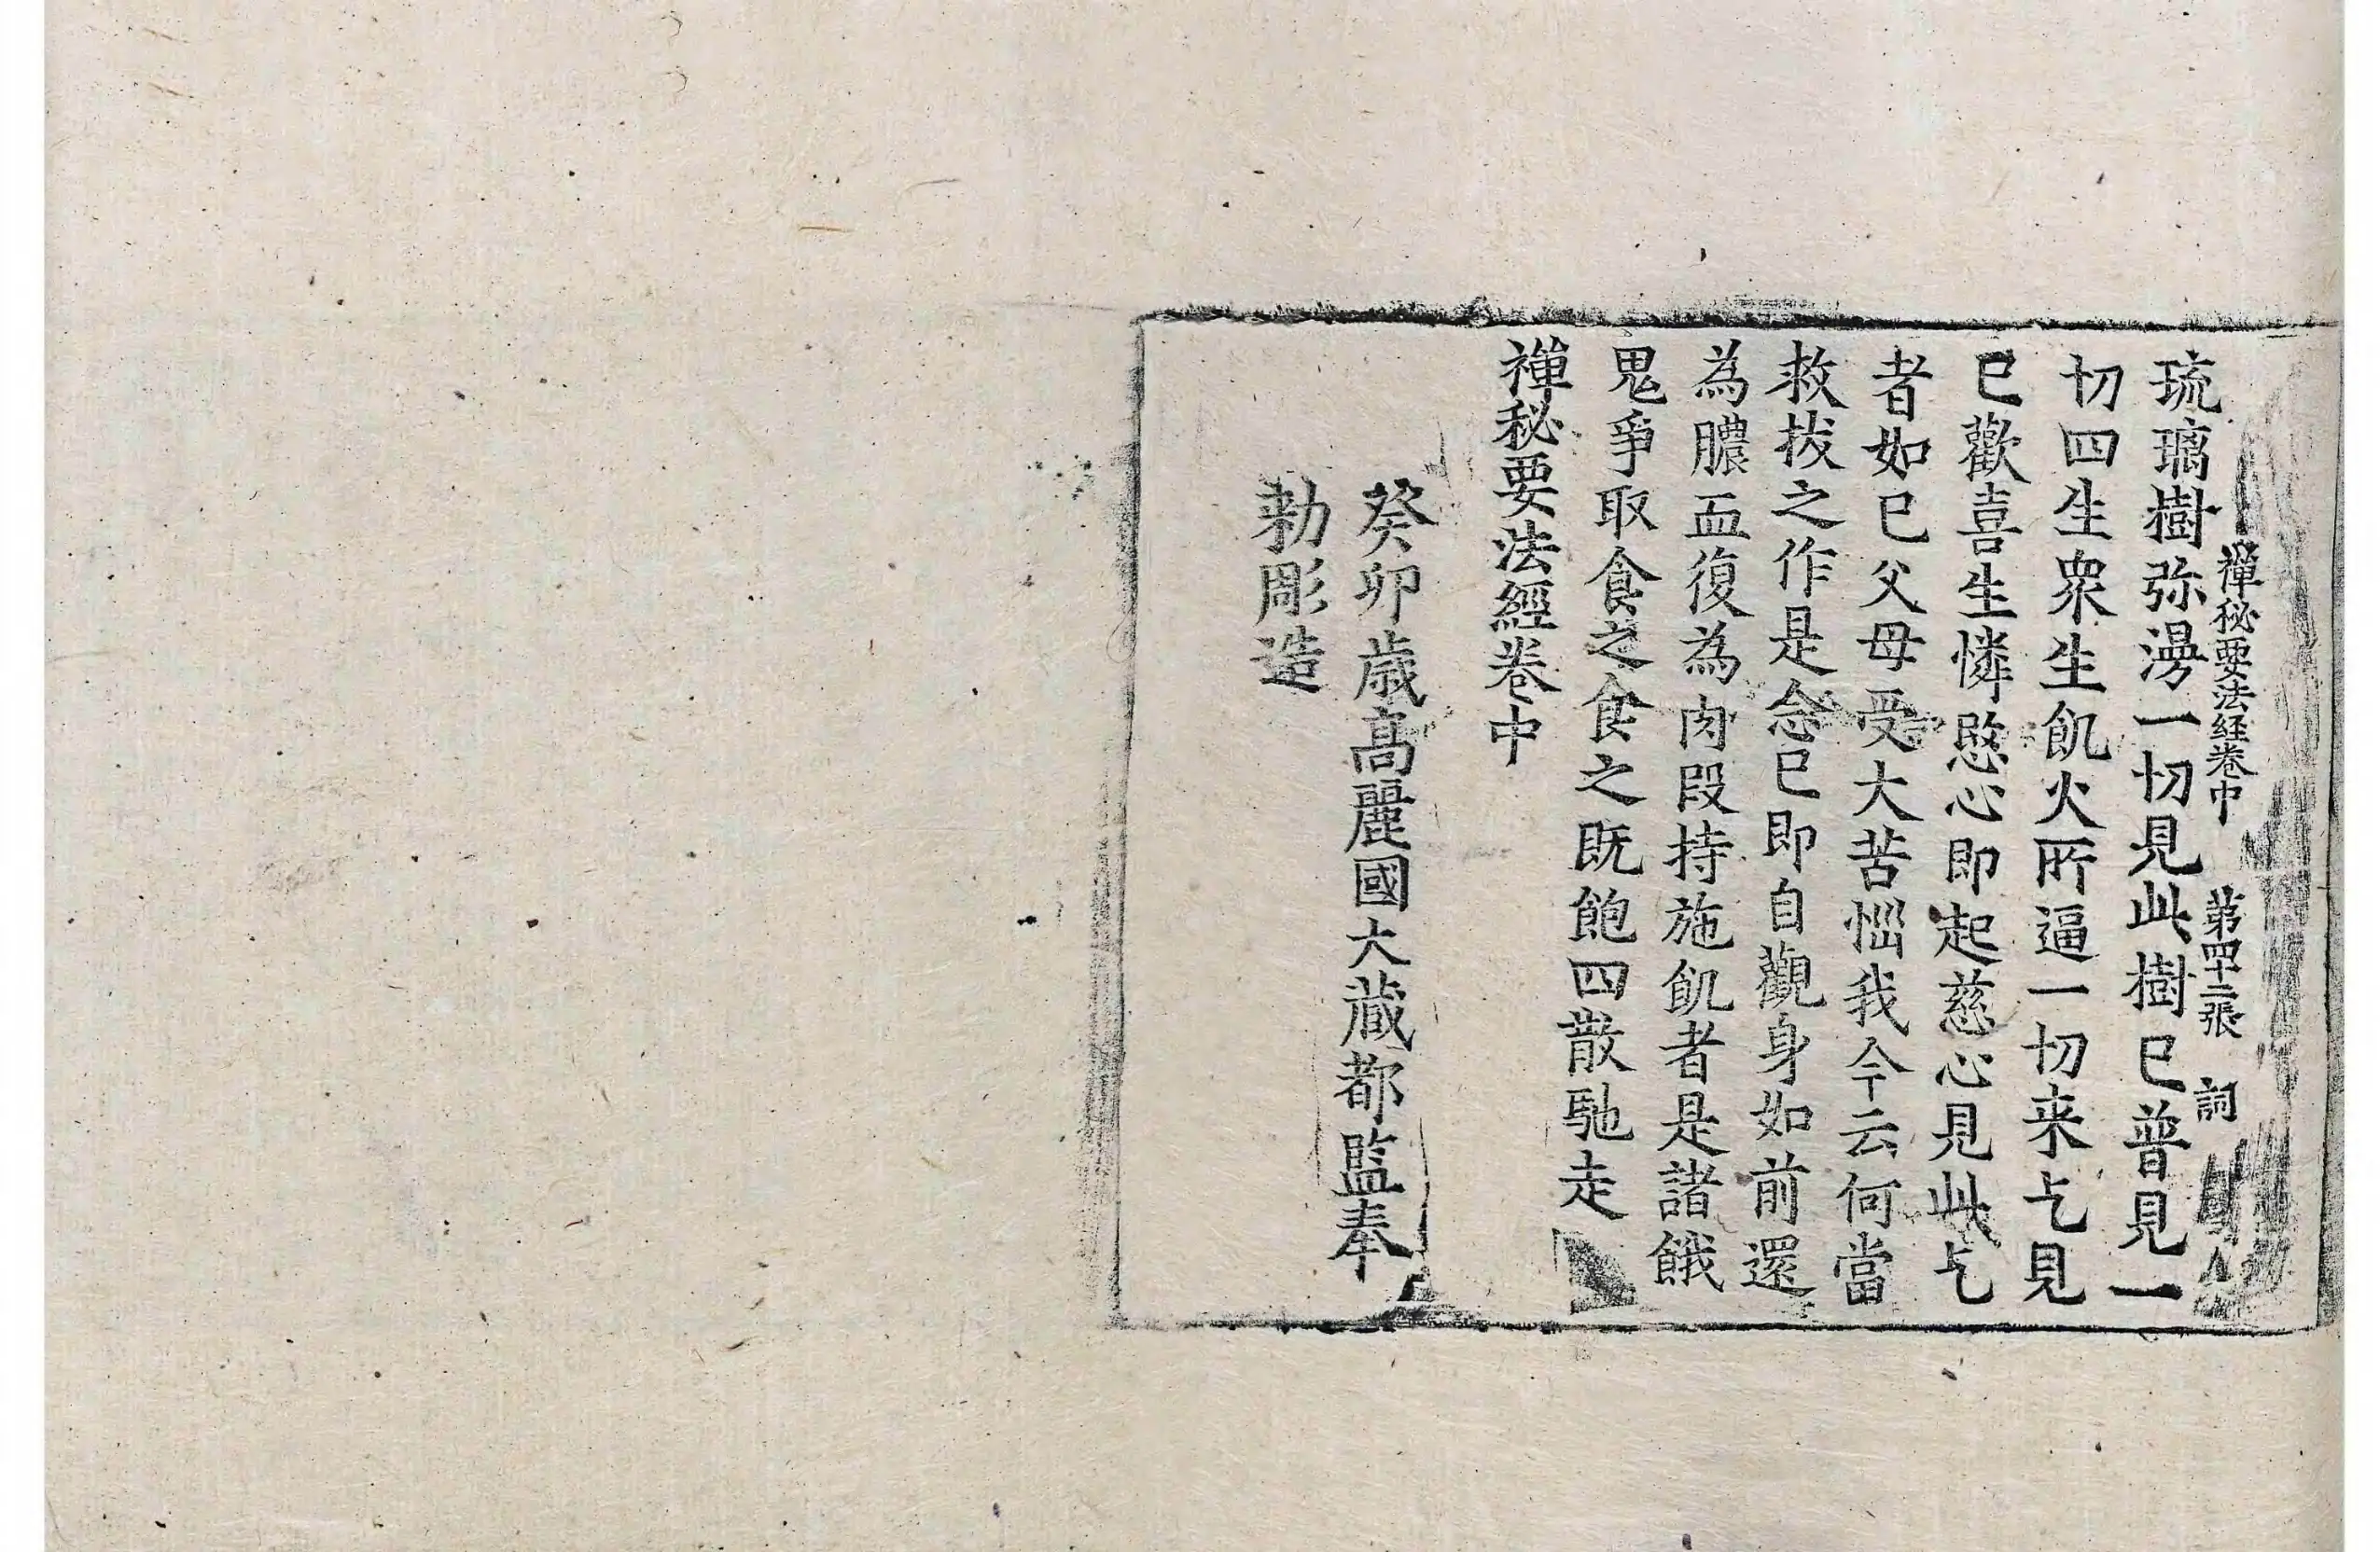 禪秘要法経卷中 第四十二張 詞
琉璃樹弥漫一切見此樹已普見一
切四生衆生飢火所逼一切来乞見
已歡喜生憐愍心即起慈心見此乞
者如已父母受大苦惱我今云何當
救拔之作是念已即自觀身如前還
為膿血復為肉段持施飢者是諸餓
鬼爭取食之食之既飽四散馳走
禪秘要法經卷中
癸卯歲高麗國大藏都監奉
勅彫造